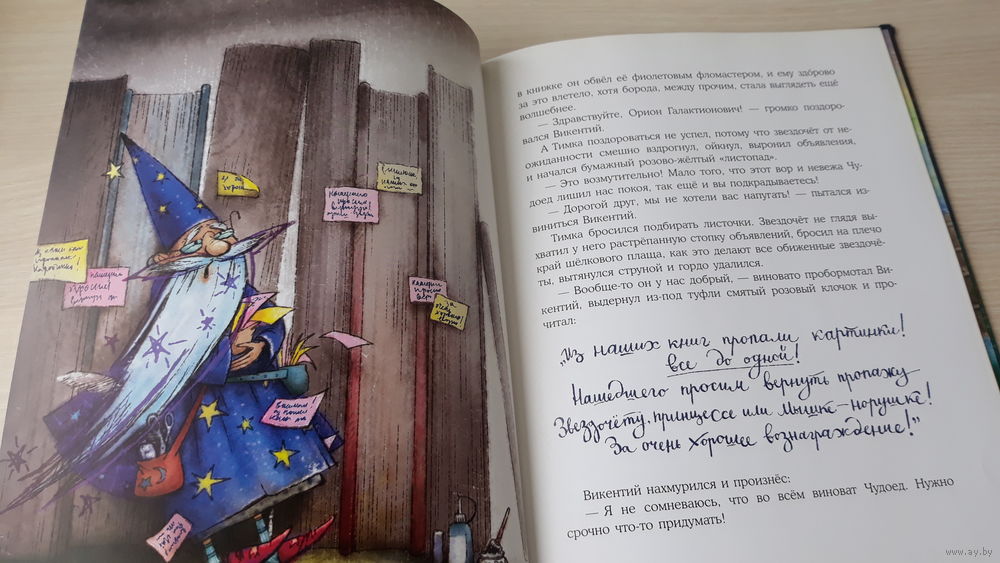 в книжке он обвёл её фиолетовым фломастером, и ему здо́рово
за это влетело, хотя борода, между прочим, стала выглядеть ещё
волшебнее.
— Здравствуйте, Орион Галактионович! — громко поздоро-
вался Викентий.
А Тимка поздороваться не успел, потому что звездочёт от не-
ожиданности смешно вздрогнул, ойкнул, выронил объявления,
и начался бумажный розово-жёлтый «листопад».
— Это возмутительно! Мало того, что этот вор и невежа Чу-
доед лишил нас покоя, так ещё и вы подкрадываетесь!
— Дорогой друг, мы не хотели вас напугать! — пытался из-
виниться Викентий.
Тимка бросился подбирать листочки. Звездочёт не глядя вы-
хватил у него растрёпанную стопку объявлений, бросил на плечо
край шёлкового плаща, как это делают все обиженные звездочё-
ты, вытянулся струной и гордо удалился.
— Вообще-то он у нас добрый, — виновато пробормотал Ви-
кентий, выдернул из-под туфли смятый розовый клочок и про-
читал:
„Из наших книг пропали картинки!
все до одной!
Нашедшего просим вернуть пропажу
Звездочёту, принцессе или мышке-норушке!
За очень хорошее вознаграждение!"
Викентий нахмурился и произнёс:
— Я не сомневаюсь, что во всём виноват Чудоед. Нужно
срочно что-то придумать!
www.ay.by